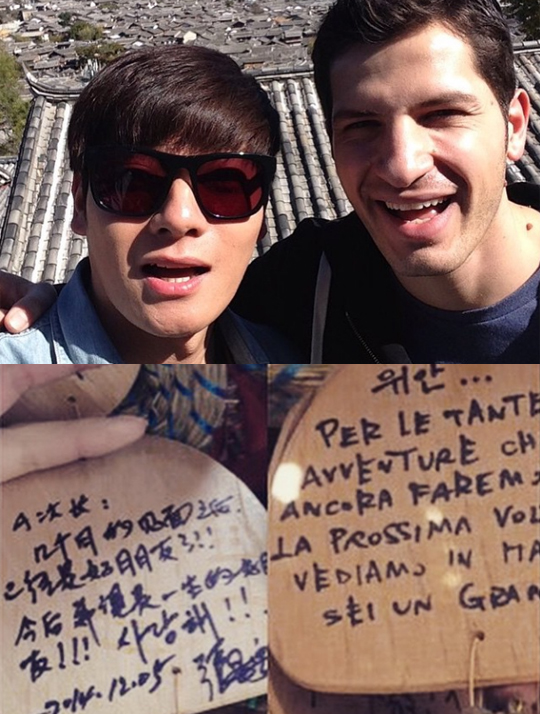 A次长:
几个月的见面之后.
已经是好朋友了!!!
今后 一生的好朋
友!!! 사랑해!!
2014.12.05
위안...
PER LE TANTE
AVVENTURE CH
ANCORA FAREMO
LA PROSSIMA VOL
VEDIAMO IN MA
SEI UN GRAN